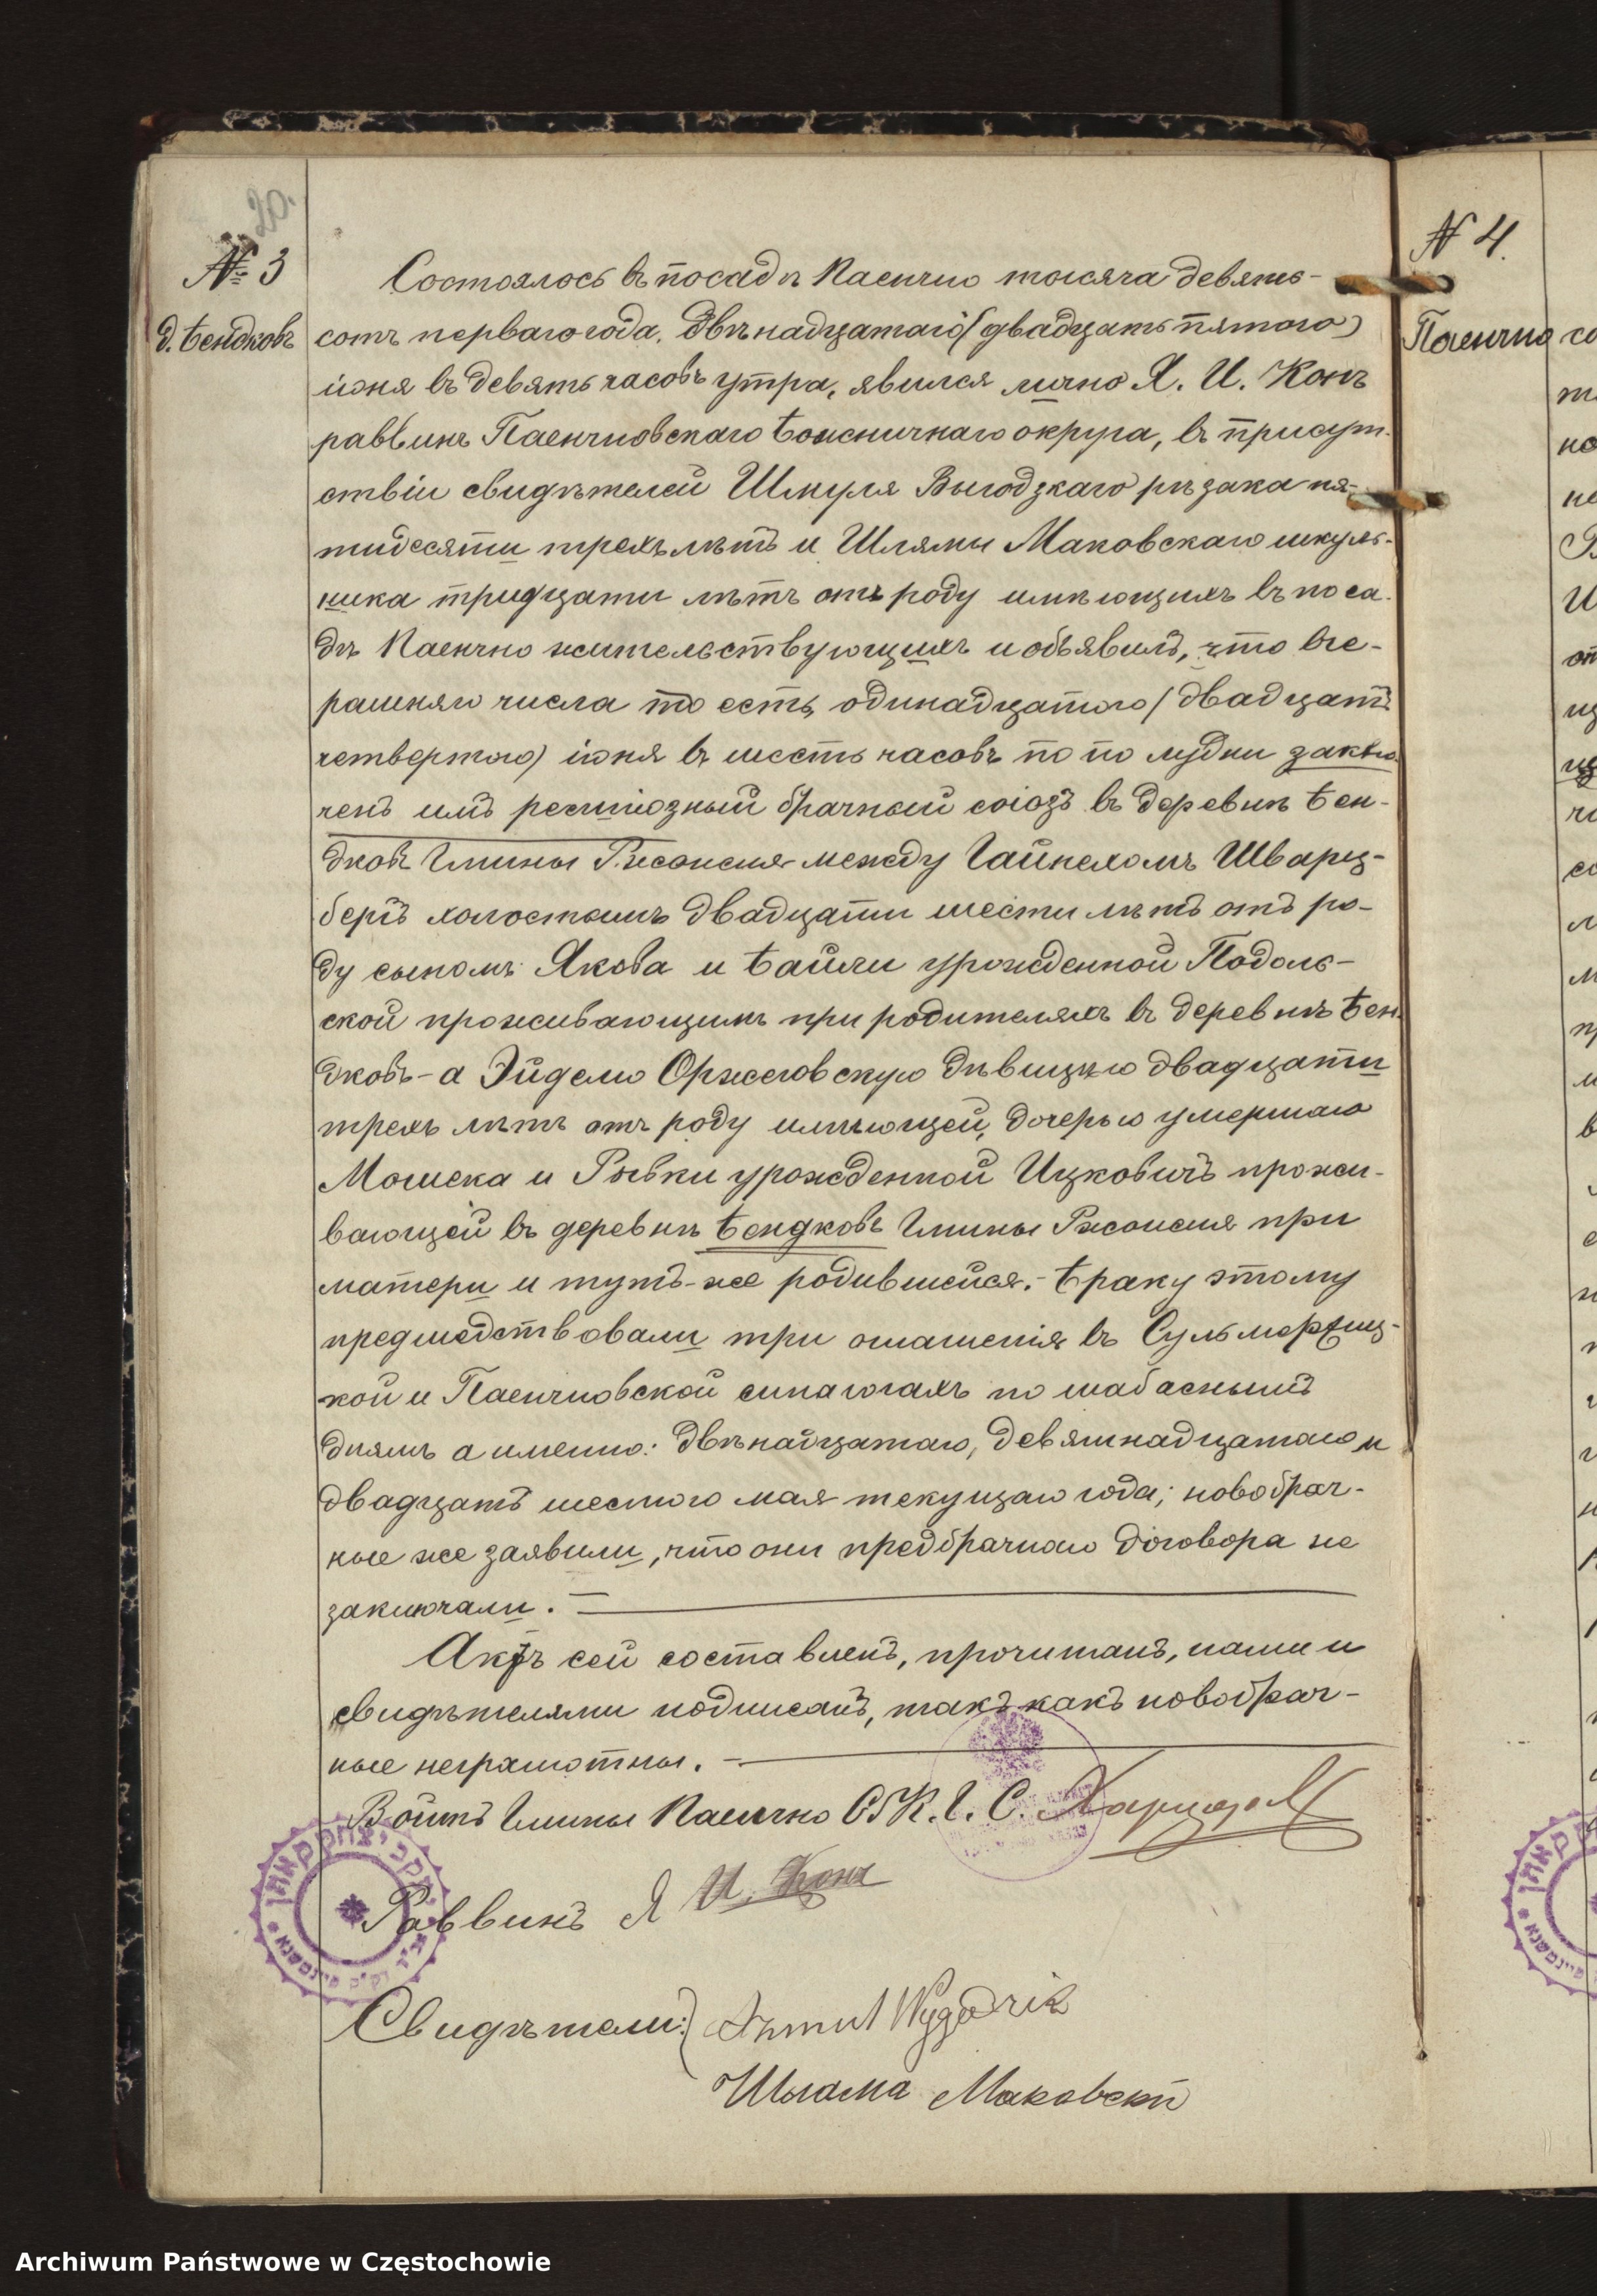 20.
№ 3
д. Бендковъ
Состоялось въ посадѣ Паенчно тысяча девять-
сотъ перваго года, двѣнадцатаго (двадцать пятого)
іюня въ девять часовъ утра, явился лично Я. И. Конъ
раввинъ Паенчновскаго божничнаго округа, въ присут-
ствіи свидѣтелей Шмуля Выгодзкаго рѣзака пя-
тидесяти трехъ лѣтъ и Шлямы Маковскаго школь-
ника тридцати лѣтъ отъ роду имѣющихъ въ поса-
дѣ Паенчно жительствующихъ и объявилъ, что вче-
рашняго числа то есть, одинадцатого (двадцать
четвертого) іюня въ шесть часовъ по по лудни заклю-
ченъ имъ религіозный брачный союзъ въ деревнѣ Бен-
дковъ Гмины Ржонсня между Гайнехомъ Шварц-
бергъ холостымъ двадцати шести лѣтъ отъ ро-
ду сыномъ Якова и Байли урожденной Подоль-
ской проживающимъ при родителяхъ въ деревнѣ Бен-
дковъ - а Эйдлею Оржеховскую дѣвицею двадцати
трехъ лѣтъ отъ роду имѣющей, дочерью умершаго
Мошека и Рывки урожденной Ицковичъ прожи-
вающей въ деревнѣ Бендковъ Гмины Ржонсня при
матери и тутъ-же родившейся. - Браку этому
предшедствовали три оглашенія въ Сульмержиц-
кой и Паенчновской синагогахъ по шабаснымъ
днямъ а именно: двѣнадцатаго, девятнадцатаго и
двадцать шестого мая текущаго года; новобрач-
ные же заявили, что они предбрачнаго договора не
заключали. -
Актъ сей составленъ, прочитанъ, нами и
свидѣтелями подписанъ, такъ какъ новобрач-
ные неграмотны. -
Войтъ Гмины Паенчно О. К. Г. С.
Раввинъ Я И. Конъ
Свидѣтели: Szmul Wygodzki
Шляма Маковскій
N 4.
Паенчно
Archiwum Państwowe w Częstochowie